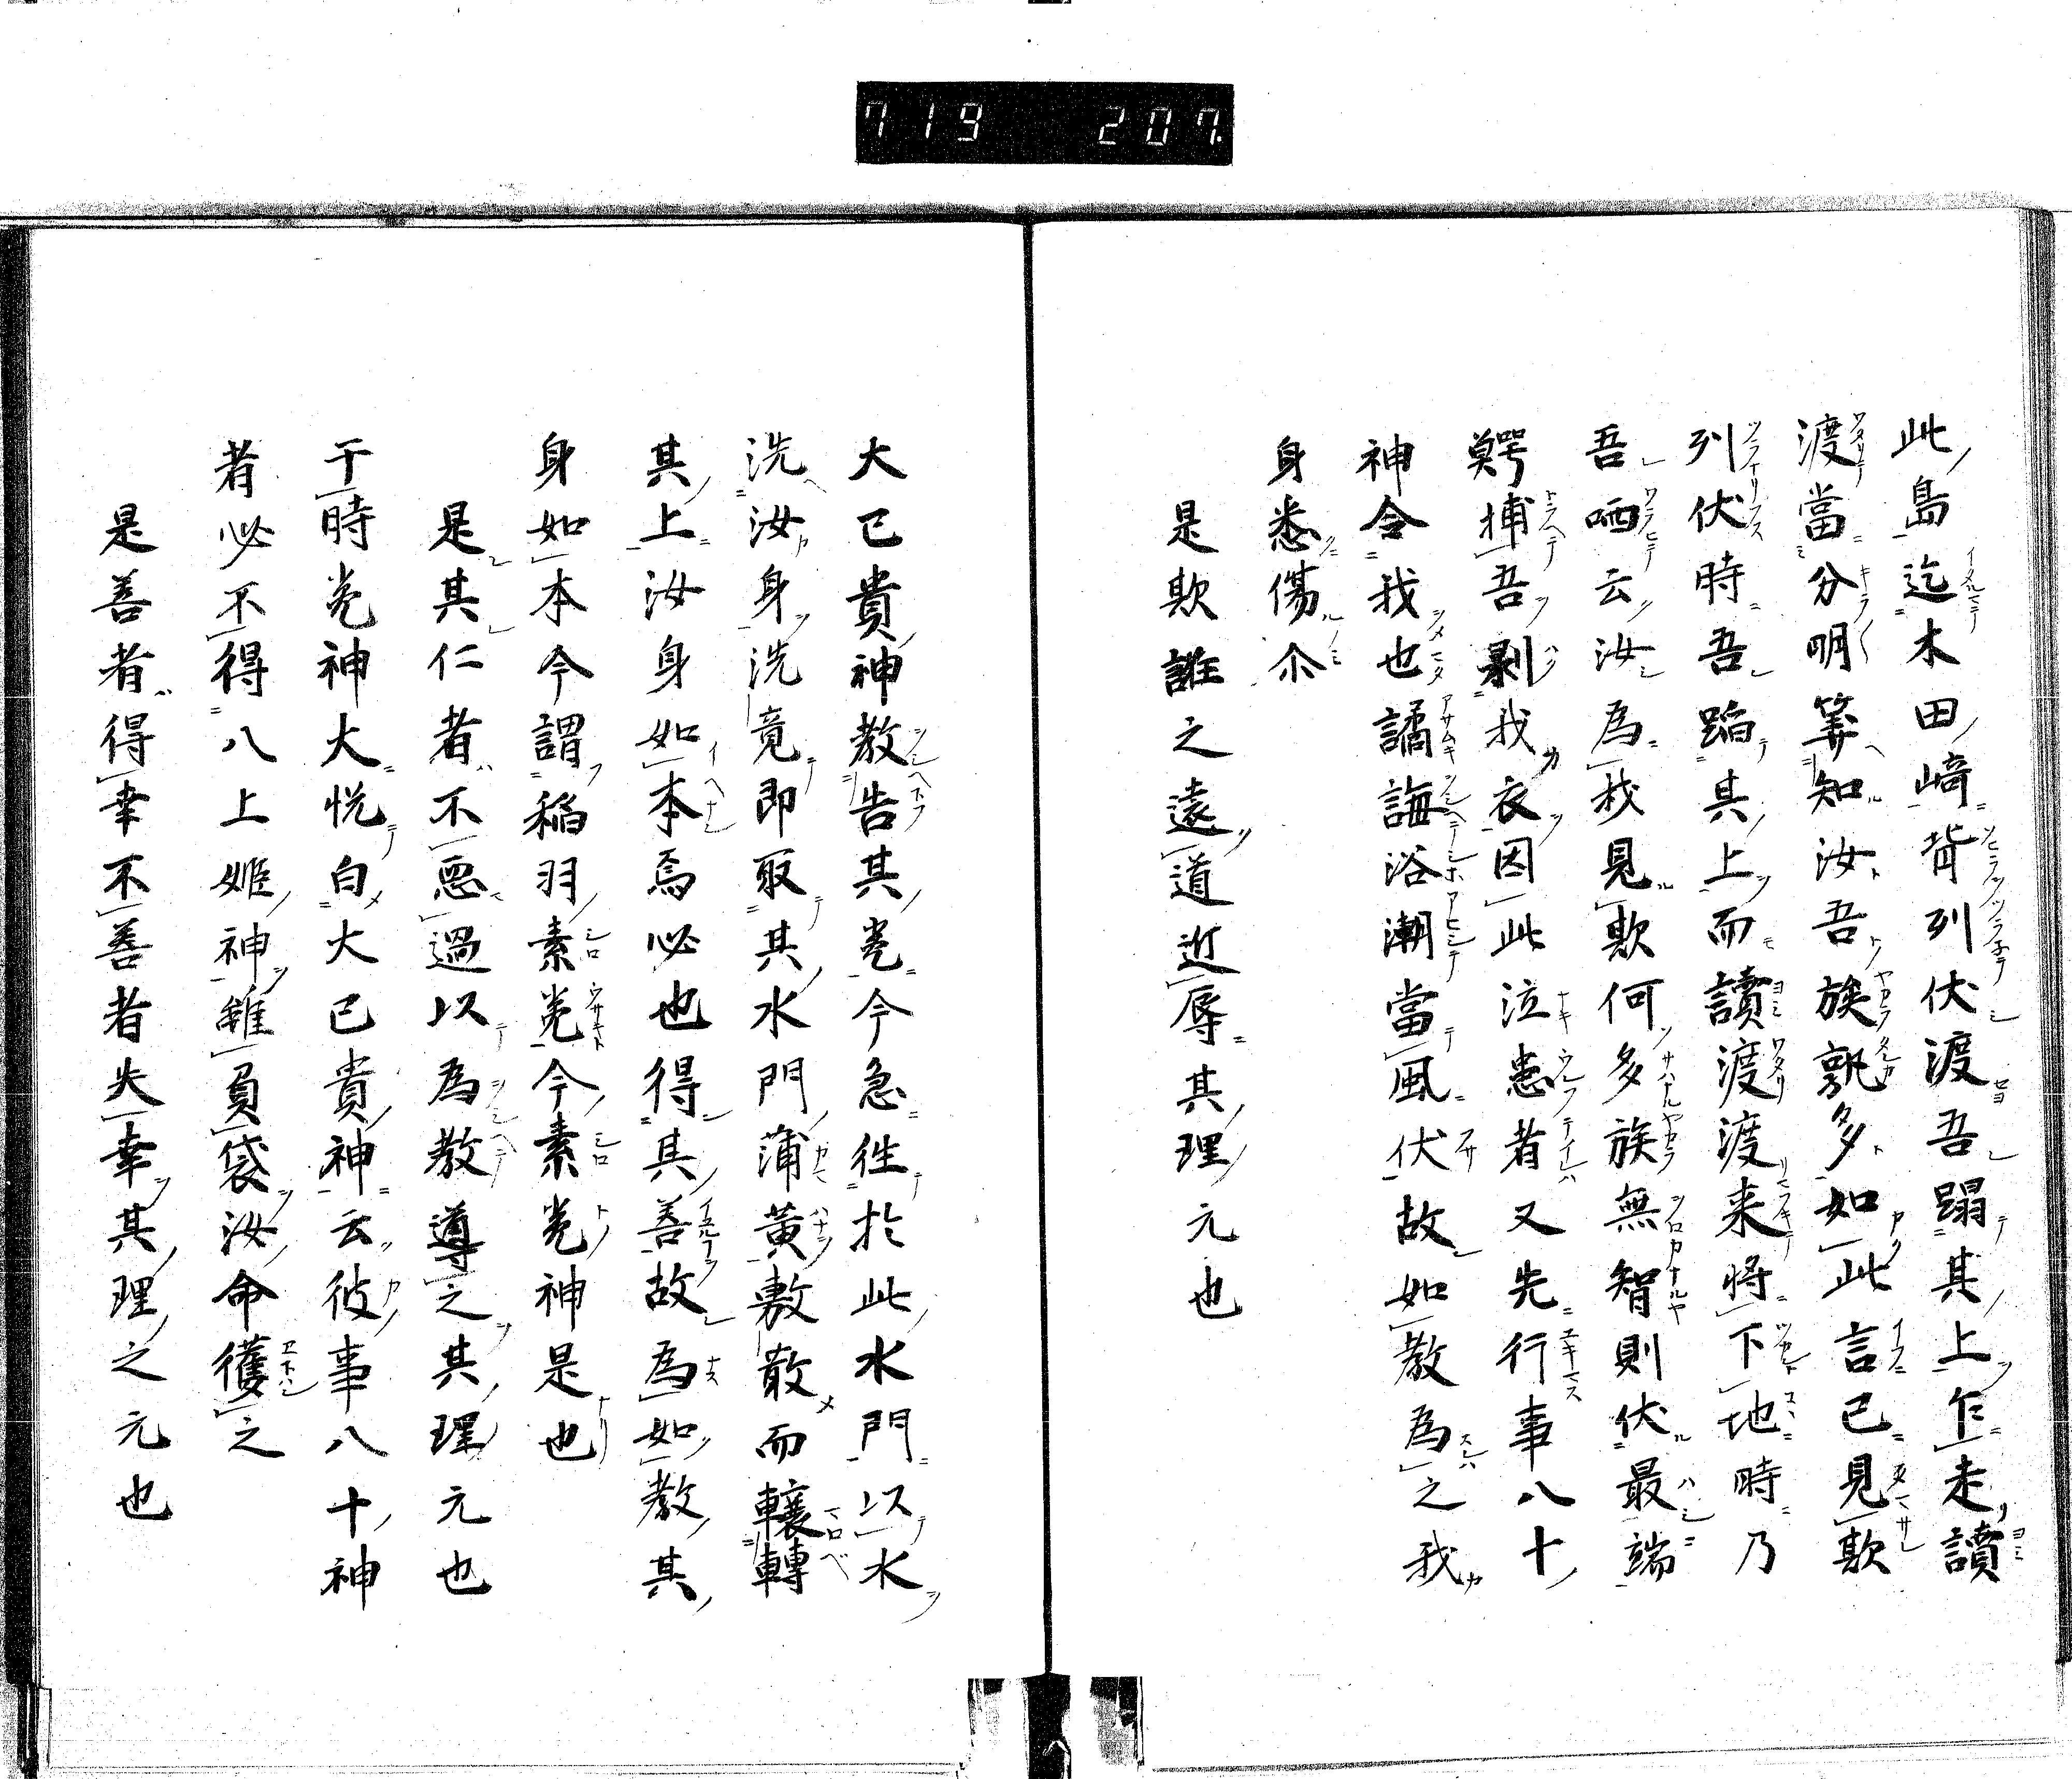 719 207
此島迄木田﨑背列伏渡吾蹋其上乍走讀
渡當分明筭知汝吾族孰多如此言已見欺
列伏時吾蹈其上而讀渡渡来将下地時乃
吾哂云汝為我見欺何多族無智則伏最端
鰐捕吾剥我衣因此泣患者又先行事八十
神令我也譎誨浴潮當風伏故如教為之我
身悉傷尒
是欺誰之遠道近辱其理元也
大已貴神教告其兎今急徃於此水門以水
洗汝身洗竟即取其水門蒲黄敷散而轉
其上汝身如本焉必也得其善故為如教其
身如本今謂稲羽素兎今素兎神是也
是其仁者不悪過以為教導之其理元也
于時兎神大悦白大已貴神云彼事八十神
者必不得八上姫神雖負袋汝命獲之
是善者得幸不善者失幸其理之元也